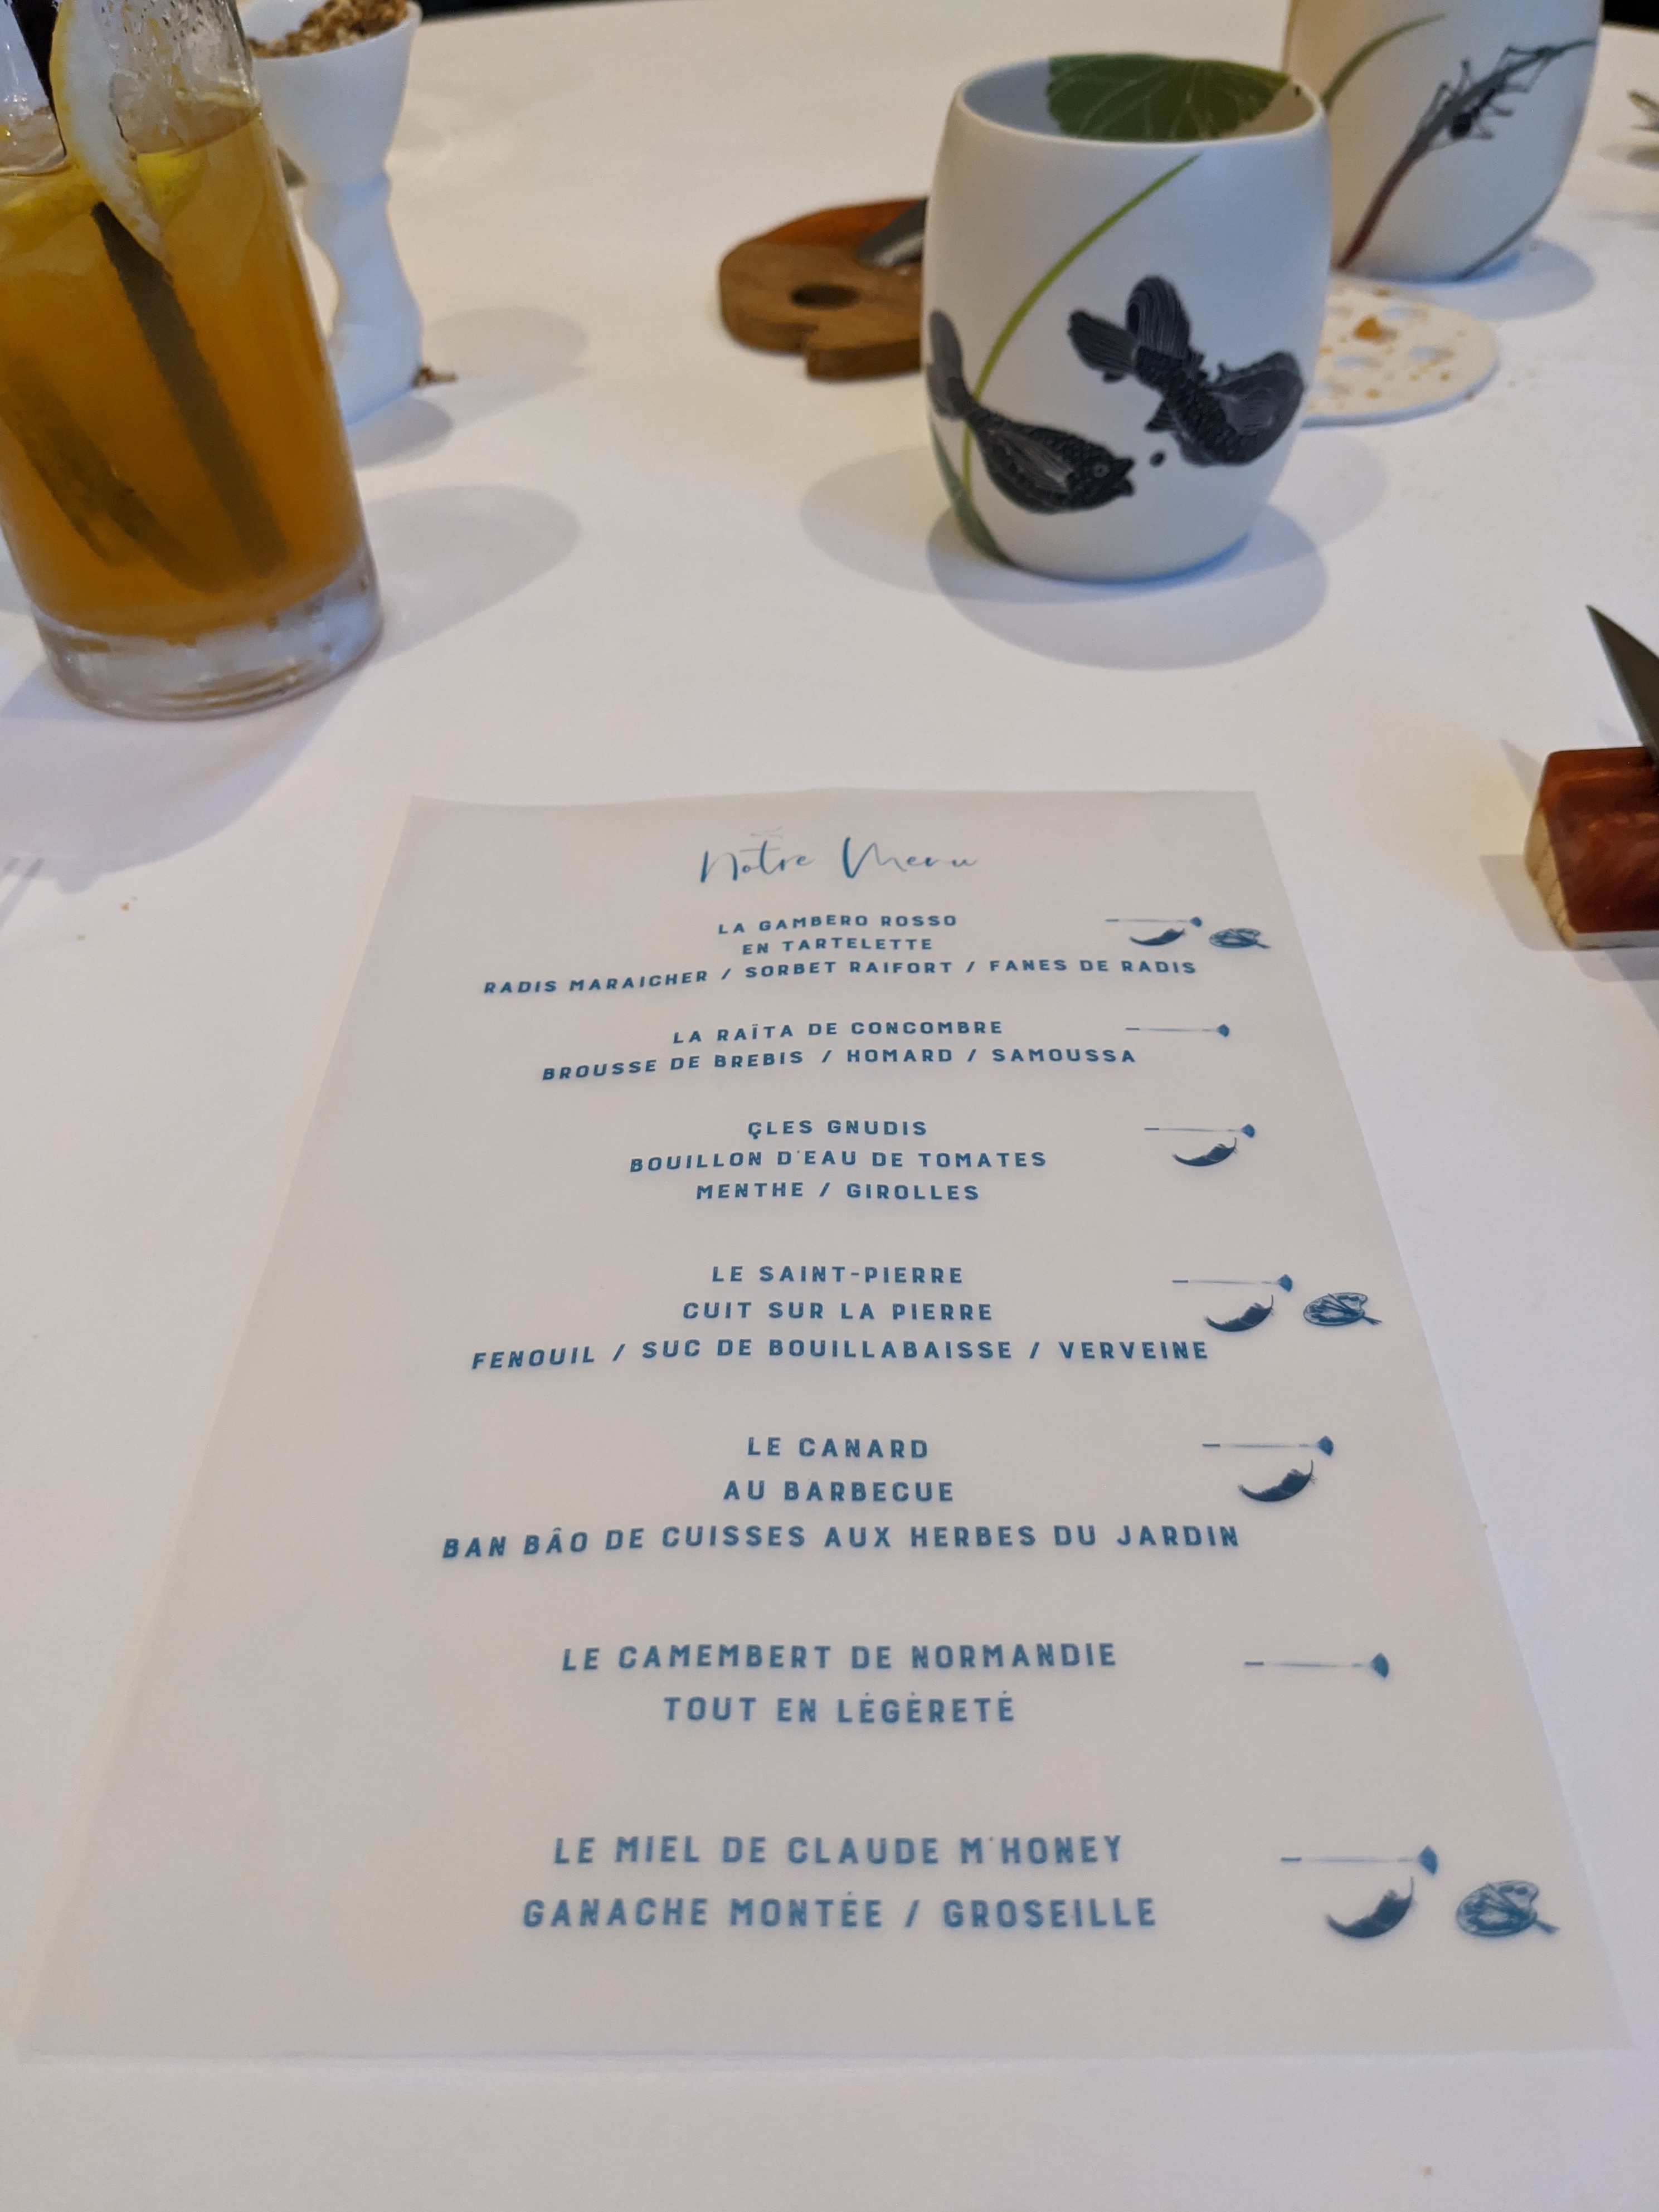 Notre Menu
LA GAMBERO ROSSO
EN TARTELETTE
RADIS MARAICHER / SORBET RAIFORT / FANES DE RADIS
LA RAÏTA DE CONCOMBRE
BROUSSE DE BREBIS / HOMARD / SAMOUSSA
ÇLES GNUDIS
BOUILLON D'EAU DE TOMATES
MENTHE / GIROLLES
LE SAINT-PIERRE
CUIT SUR LA PIERRE
FENOUIL / SUC DE BOUILLABAISSE / VERVEINE
LE CANARD
AU BARBECUE
BAN BÂO DE CUISSES AUX HERBES DU JARDIN
LE CAMEMBERT DE NORMANDIE
TOUT EN LÉGÈRETÉ
LE MIEL DE CLAUDE M'HONEY
GANACHE MONTÉE / GROSEILLE